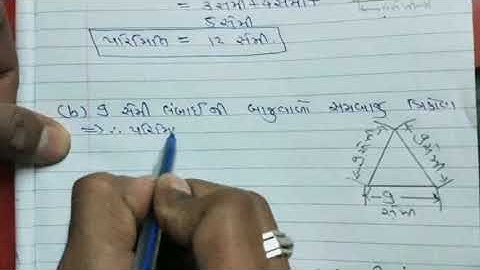 = 3સેમી + 4સેમી +
5 સેમી
પરિમિતિ = 12 સેમી.
(b) 9 સેમી લંબાઈની બાજુવાળો સમબાજુ ત્રિકોણ
⇒ ∴ પરિમિ
9 સેમી
9 સેમી
9
સેમી